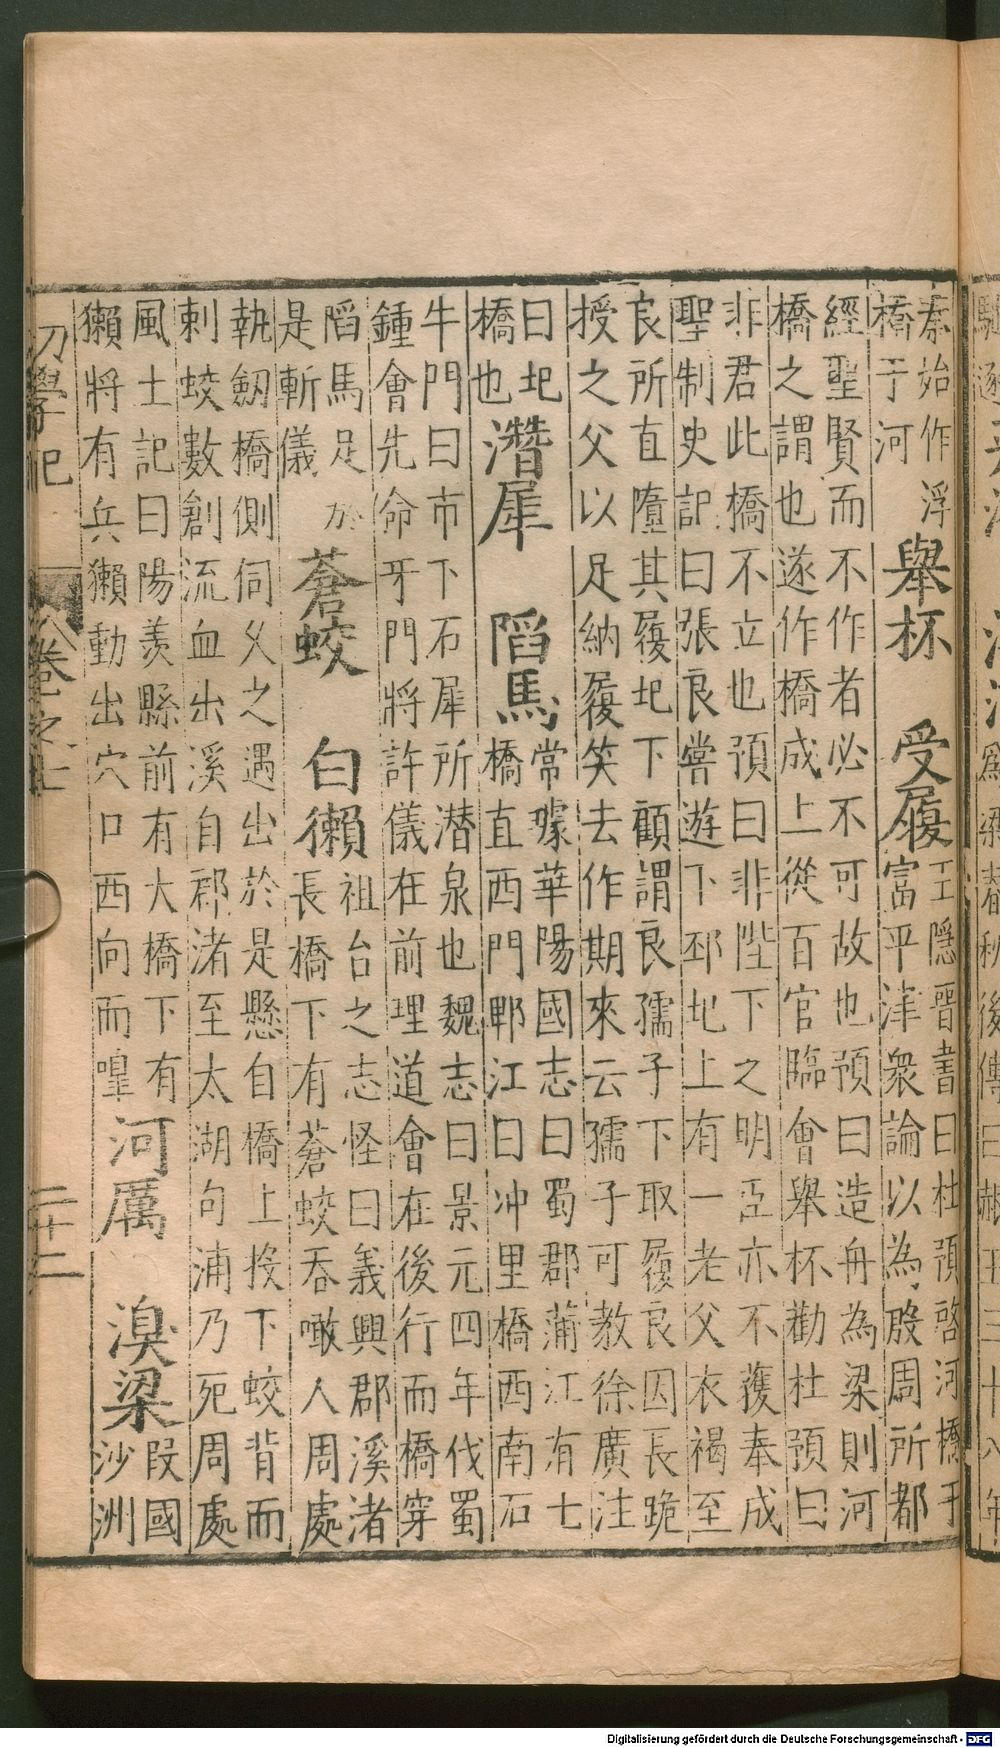 秦始作浮
橋于河
舉杯 受履
王隱晉書曰杜預啓河橋于
富平津衆論以為殷周所都
經聖賢而不作者必不可故也預曰造舟為梁則河
橋之謂也遂作橋成上從百官臨會舉杯勸杜預曰
非君此橋不立也預曰非陛下之明臣亦不獲奉成
聖制史記曰張良嘗遊下邳圯上有一老父衣褐至
良所直墮其履圯下顧謂良孺子下取履良因長跪
授之父以足納履笑去作期來云孺子可教徐廣注
曰圯
橋也
潛犀 䧟馬
常璩華陽國志曰蜀郡蒲江有七
橋直西門郫江曰冲里橋西南石
牛門曰市下石犀所潜泉也魏志曰景元四年伐蜀
鍾會先命牙門將許儀在前理道會在後行而橋穿
䧟馬足於
是斬儀
蒼蛟 白獺
祖台之志怪曰義興郡溪渚
長橋下有蒼蛟吞噉人周處
執劔橋側伺乆之遇出於是懸自橋上投下蛟背而
刺蛟數創流血出溪自郡渚至太湖句浦乃死周處
風土記曰陽羨縣前有大橋下有
獺將有兵獺動出穴口西向而嘷
河厲 溴梁
段國
沙洲
初學記
卷之七
二十二
為梁春秋後傳曰赧王三十八年
Digitalisierung gefördert durch die Deutsche Forschungsgemeinschaft - DFG